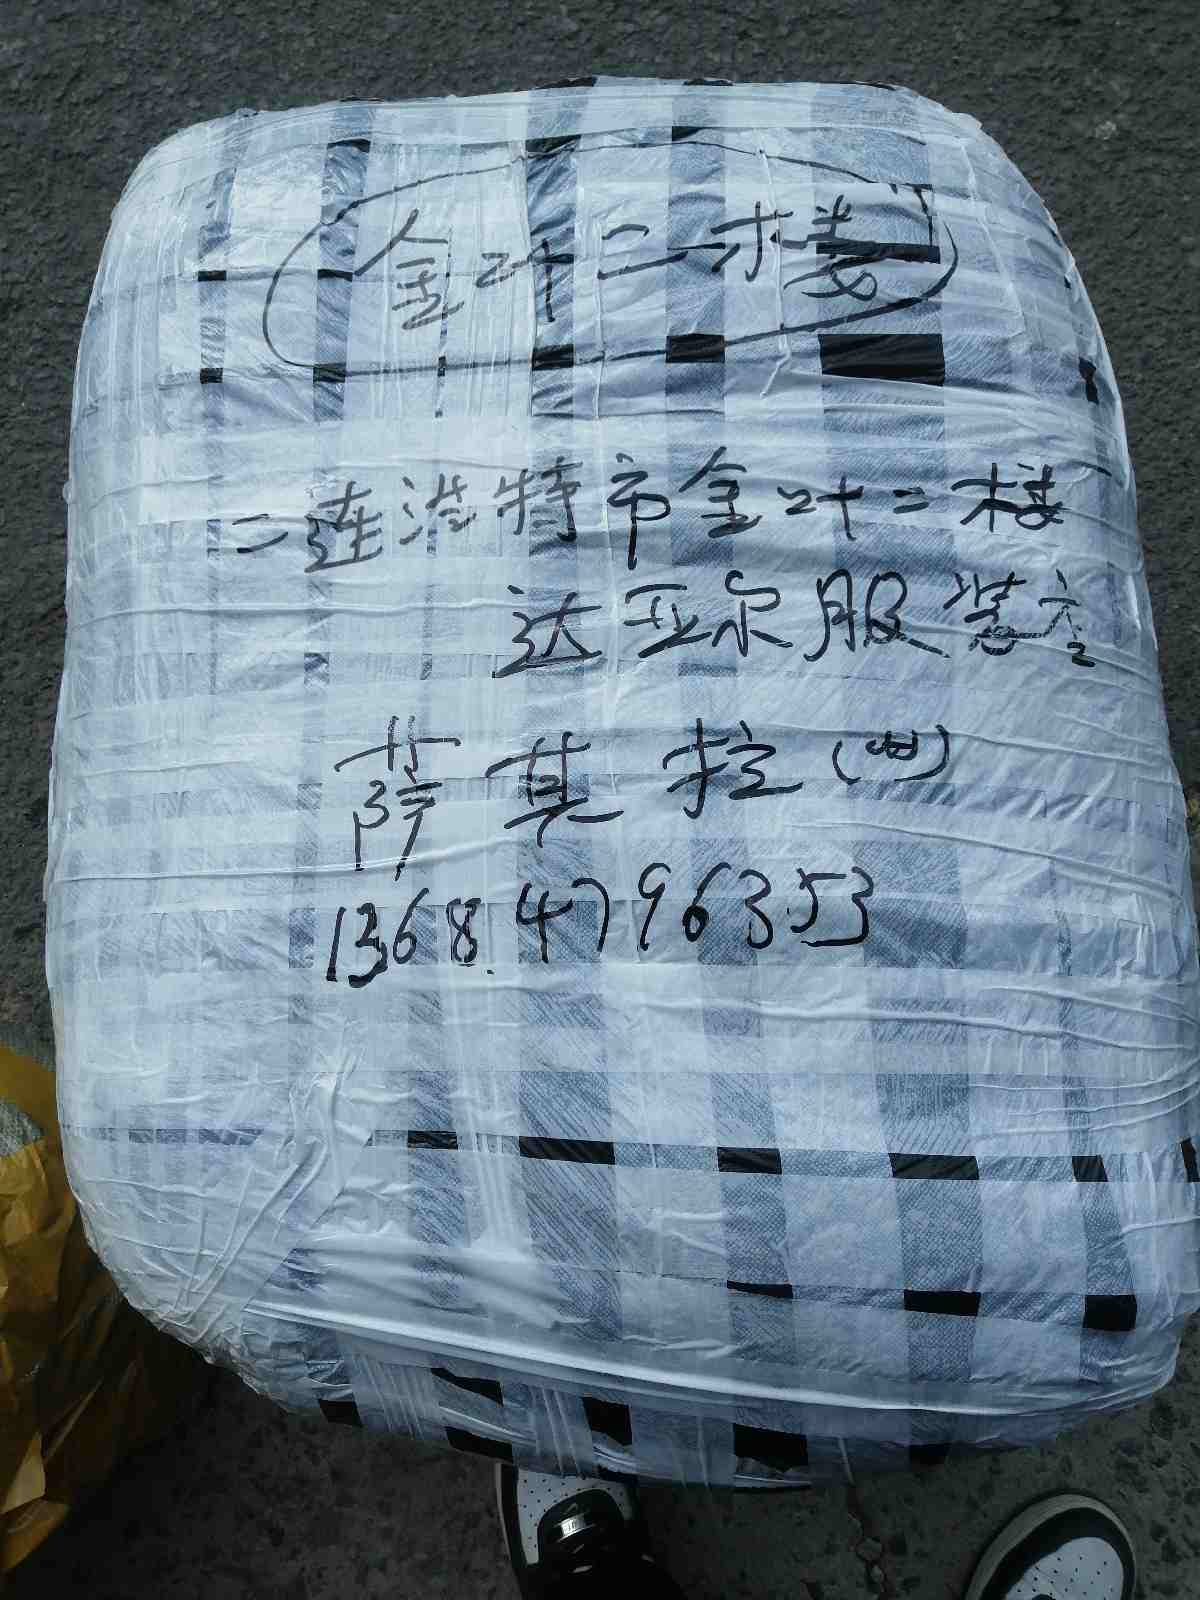 金叶二楼
二连浩特市金叶二楼
达亚尔服装店
萨其拉(四)
13684796353